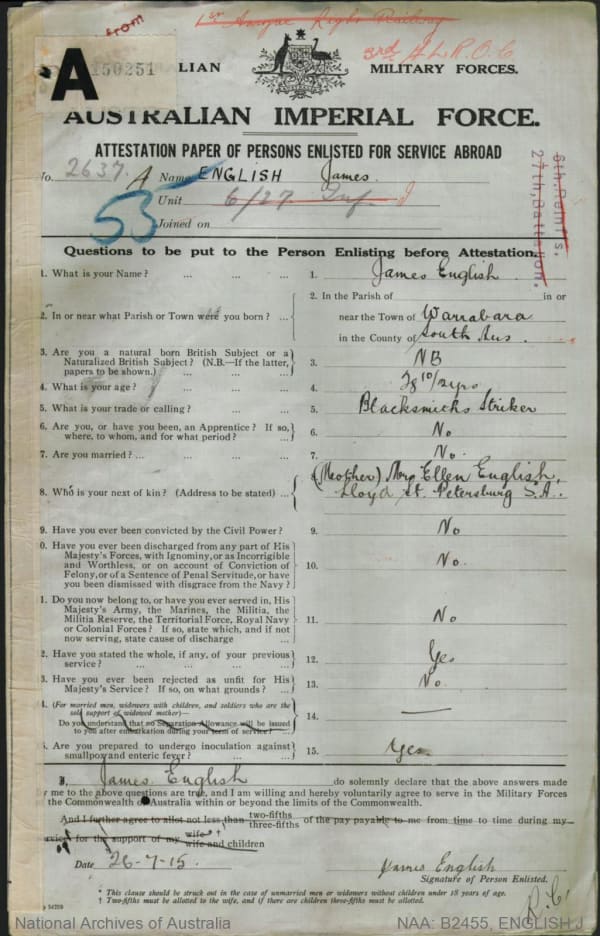 from
Light Railway
3rd A.L.R.O.C
A
150251
ALIAN MILITARY FORCES.
AUSTRALIAN IMPERIAL FORCE.
ATTESTATION PAPER OF PERSONS ENLISTED FOR SERVICE ABROAD
No. 2637 A Name ENGLISH James.
Unit 6/27 Inf
53
Joined on
6th Reinfts.
27th Battalion.
Questions to be put to the Person Enlisting before Attestation.
1. What is your Name? ... ... ... 1. James English
2. In or near what Parish or Town were you born? ...
2. In the Parish of in or
near the Town of Warrabara
in the County of South Aus.
3. Are you a natural born British Subject or a
Naturalized British Subject? (N.B.—If the latter,
papers to be shown.) ... ... 3. NB
4. What is your age? ... ... 4. 10/12 yrs
5. What is your trade or calling? ... ... 5. Blacksmiths Striker
6. Are you, or have you been, an Apprentice? If so,
where, to whom, and for what period? ... 6. No
7. Are you married? ... ... ... 7. No.
8. Who is your next of kin? (Address to be stated) ...
8. (Mother) Mrs Ellen English,
Lloyd St. Petersburg S.A.
9. Have you ever been convicted by the Civil Power? 9. No
0. Have you ever been discharged from any part of His
Majesty's Forces, with Ignominy, or as Incorrigible
and Worthless, or on account of Conviction of
Felony, or of a Sentence of Penal Servitude, or have
you been dismissed with disgrace from the Navy? 10. No.
1. Do you now belong to, or have you ever served in, His
Majesty's Army, the Marines, the Militia, the
Militia Reserve, the Territorial Force, Royal Navy
or Colonial Forces? If so, state which, and if not
now serving, state cause of discharge ... 11. No
2. Have you stated the whole, if any, of your previous
service? ... ... ... ... 12. Yes
3. Have you ever been rejected as unfit for His
Majesty's Service? If so, on what grounds? ... 13. No.
4. (For married men, widowers with children, and soldiers who are the
sole support of widowed mother)—
Do you understand that no Separation Allowance will be issued
to you after embarkation during your term of service? 14. —
5. Are you prepared to undergo inoculation against
smallpox and enteric fever? ... ... 15. Yes
I, James English do solemnly declare that the above answers made
by me to the above questions are true, and I am willing and hereby voluntarily agree to serve in the Military Forces
of the Commonwealth of Australia within or beyond the limits of the Commonwealth.
And I further agree to allot not less than two-fifths three-fifths of the pay payable to me from time to time during my
service for the support of my wife † wife and children
Date 26-7-15. James English
Signature of Person Enlisted.
* This clause should be struck out in the case of unmarried men or widowers without children under 18 years of age.
† Two-fifths must be allotted to the wife, and if there are children three-fifths must be allotted.
R.C.
National Archives of Australia NAA: B2455, ENGLISH J